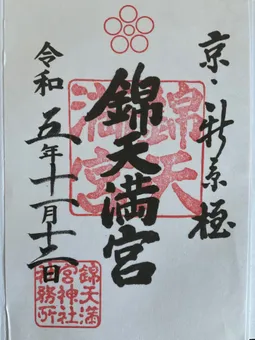 京・新京極
錦天満宮
令和五年十一月十二日
錦天
満宮
錦天満
宮神社
社務所